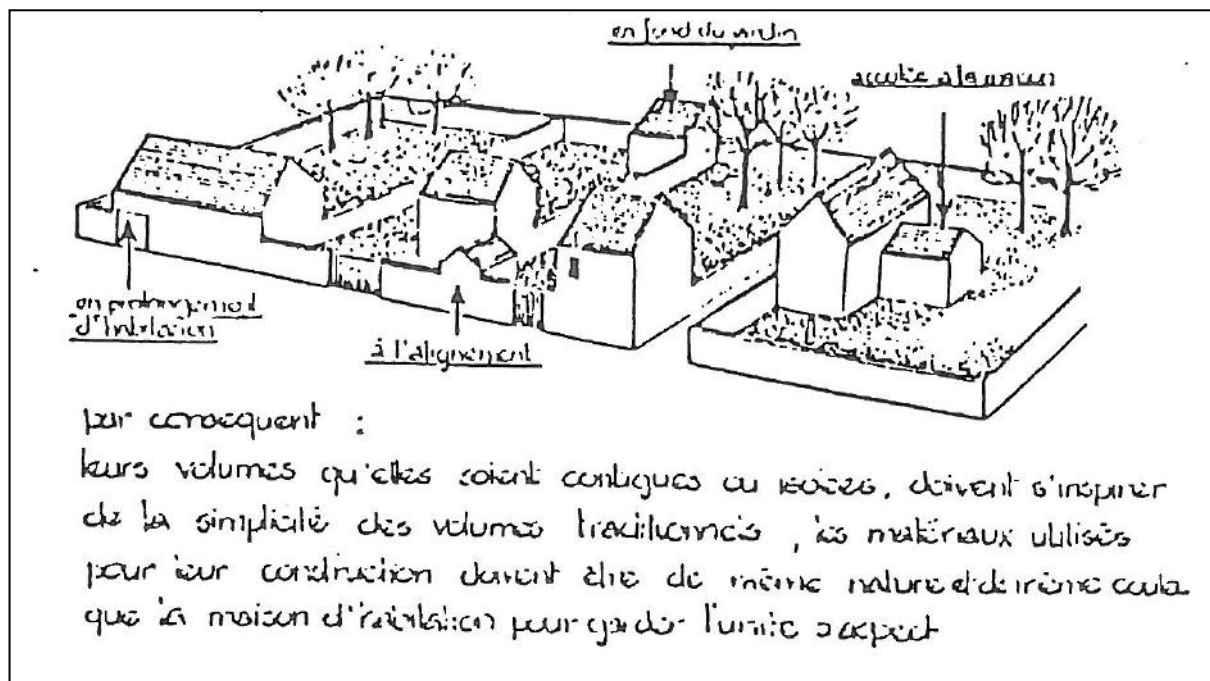 en fond du jardin
accolée à la maison
en prolongement
d'habitation
à l'alignement
par consequent :
leurs volumes qu'elles soient contigues ou isolées, doivent s'inspirer
de la simplicité des volumes traditionnels, les matériaux utilisés
pour leur construction doivent être de même nature et de même couleur
que la maison d'habitation pour garder l'unité d'aspect